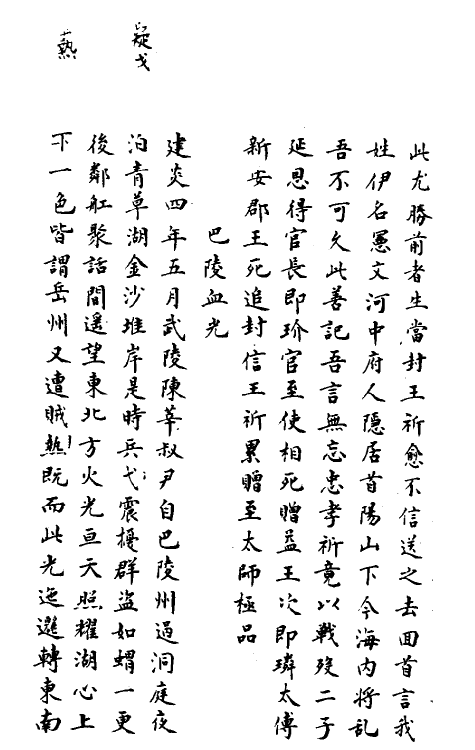 此尤勝前者生當封王祈愈不信送之去回首言我
姓伊名憲文河中府人隱居首陽山下今海内将乱
吾不可久此善記吾言無忘忠孝祈竟以戰殁二子
延恩得官長即玠官至使相死贈益王次即璘太傅
新安郡王死追封信王祈累贈至太師極品
巴陵血光
建炎四年五月武陵陳莘叔尹自巴陵州過洞庭夜
泊青草湖金沙堆岸是時兵弋震擾群盗如蝟一更
後鄰舡聚話間遥望東北方火光亘天照耀湖心上
下一色皆謂岳州又遭賊𤍠既而此光迤邐轉東南
疑戈
爇